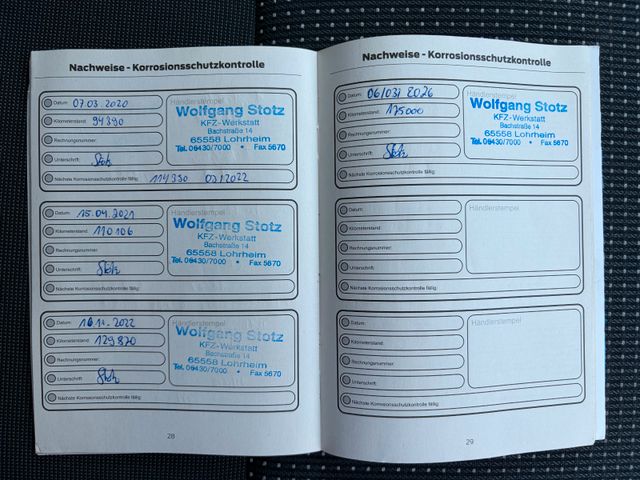 Nachweise - Korrosionsschutzkontrolle
Datum: 07.03.2020
Kilometerstand: 94390
Rechnungsnummer:
Unterschrift: Stotz
Händlerstempel
Wolfgang Stotz
KFZ-Werkstatt
Bachstraße 14
65558 Lohrheim
Tel. 06430/7000 • Fax 5670
Nächste Korrosionsschutzkontrolle fällig: 114390 03/2022
Datum: 15.04.2021
Kilometerstand: 110106
Rechnungsnummer:
Unterschrift: Stotz
Händlerstempel
Wolfgang Stotz
KFZ-Werkstatt
Bachstraße 14
65558 Lohrheim
Tel. 06430/7000 • Fax 5670
Nächste Korrosionsschutzkontrolle fällig:
Datum: 16.11.2022
Kilometerstand: 129870
Rechnungsnummer:
Unterschrift: Stotz
Händlerstempel
Wolfgang Stotz
KFZ-Werkstatt
Bachstraße 14
65558 Lohrheim
Tel. 06430/7000 • Fax 5670
Nächste Korrosionsschutzkontrolle fällig:
28
Nachweise - Korrosionsschutzkontrolle
Datum: 06/03/2026
Kilometerstand: 175000
Rechnungsnummer:
Unterschrift: Stotz
Händlerstempel
Wolfgang Stotz
KFZ-Werkstatt
Bachstraße 14
65558 Lohrheim
Tel. 06430/7000 • Fax 5670
Nächste Korrosionsschutzkontrolle fällig:
Datum:
Kilometerstand:
Rechnungsnummer:
Unterschrift:
Händlerstempel
Nächste Korrosionsschutzkontrolle fällig:
Datum:
Kilometerstand:
Rechnungsnummer:
Unterschrift:
Händlerstempel
Nächste Korrosionsschutzkontrolle fällig:
29